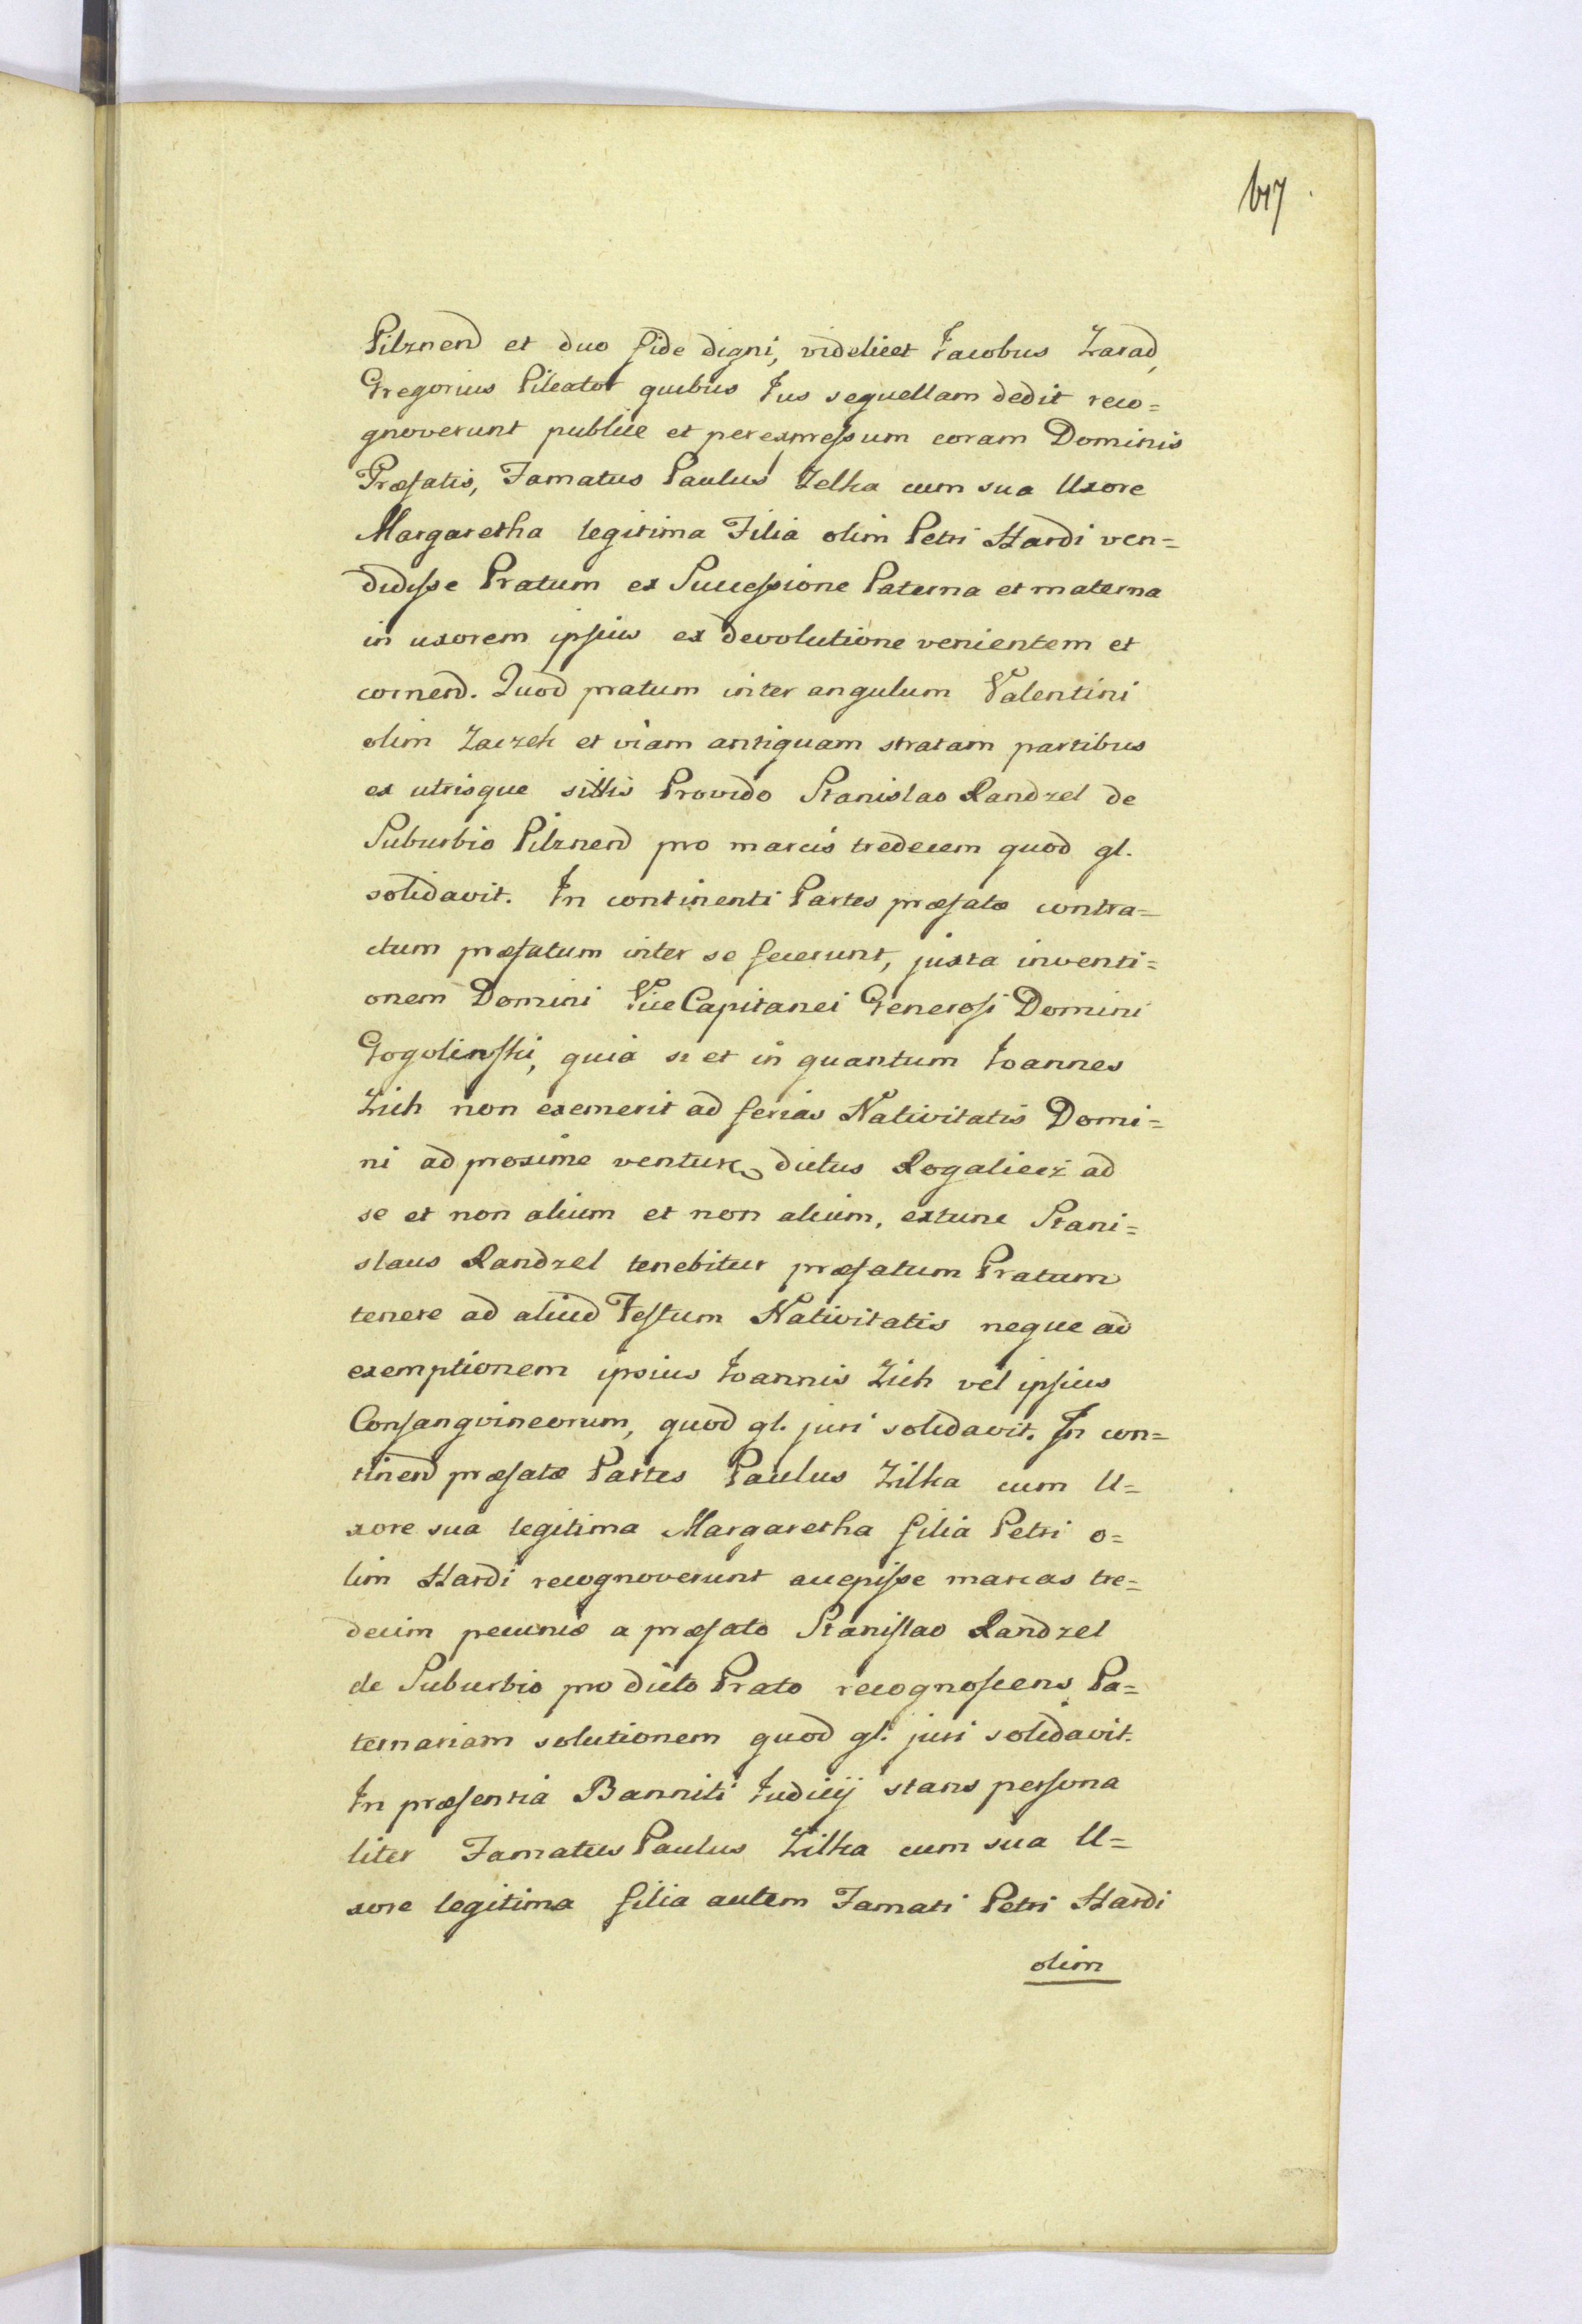 617
Pilznen et duo fide digni, videlicet Jacobus Zarad,
Gregorius Pileator quibus Jus sequellam dedit reco=
gnoverunt publice et per expressum coram Dominis
Præfatis, Famatus Paulus Zelka cum sua Uxore
Margaretha legitima Filia olim Petri Hardi ven=
didisse Pratum ex Successione Paterna et materna
in uxorem ipsius ex devolutione venientem et
cornend. Quod pratum inter angulum Valentini
olim Zaczek et viam antiquam stratam partibus
ex utrisque sittis Provido Stanislao Randzel de
Suburbio Pilznen pro marcis tredecem quod gl.
solidavit. In continenti Partes præfatæ contra=
ctum præfatum inter se fecerunt, juxta inventi=
onem Domini Vice Capitanei Generosi Domini
Gogolinski, quia si et in quantum Joannes
Zich non exemerit ad ferias Nativitatis Domi=
ni ad proxime ventur. dictus Rogaliecz ad
se et non alium et non alium, extunc Stani=
slaus Randzel tenebitur præfatum Pratum
tenere ad aliud Festum Nativitatis neque ad
exemptionem ipsius Joannis Zich vel ipsius
Consangvineorum, quod gl. juri solidavit. In con=
tinen præfatæ Partes Paulus Zilka cum U=
xore sua legitima Margaretha filia Petri o=
lim Hardi recognoverunt accepisse marcas tre=
decim pecuniæ a præfato Stanislao Randzel
de Suburbio pro dicto Prato recognoscens Pa=
ternariam solutionem quod gl. juri solidavit.
In præsentia Banniti Judicij stans persona
liter Famatus Paulus Zilka cum sua U=
xore legitima filia autem Famati Petri Hardi
olim